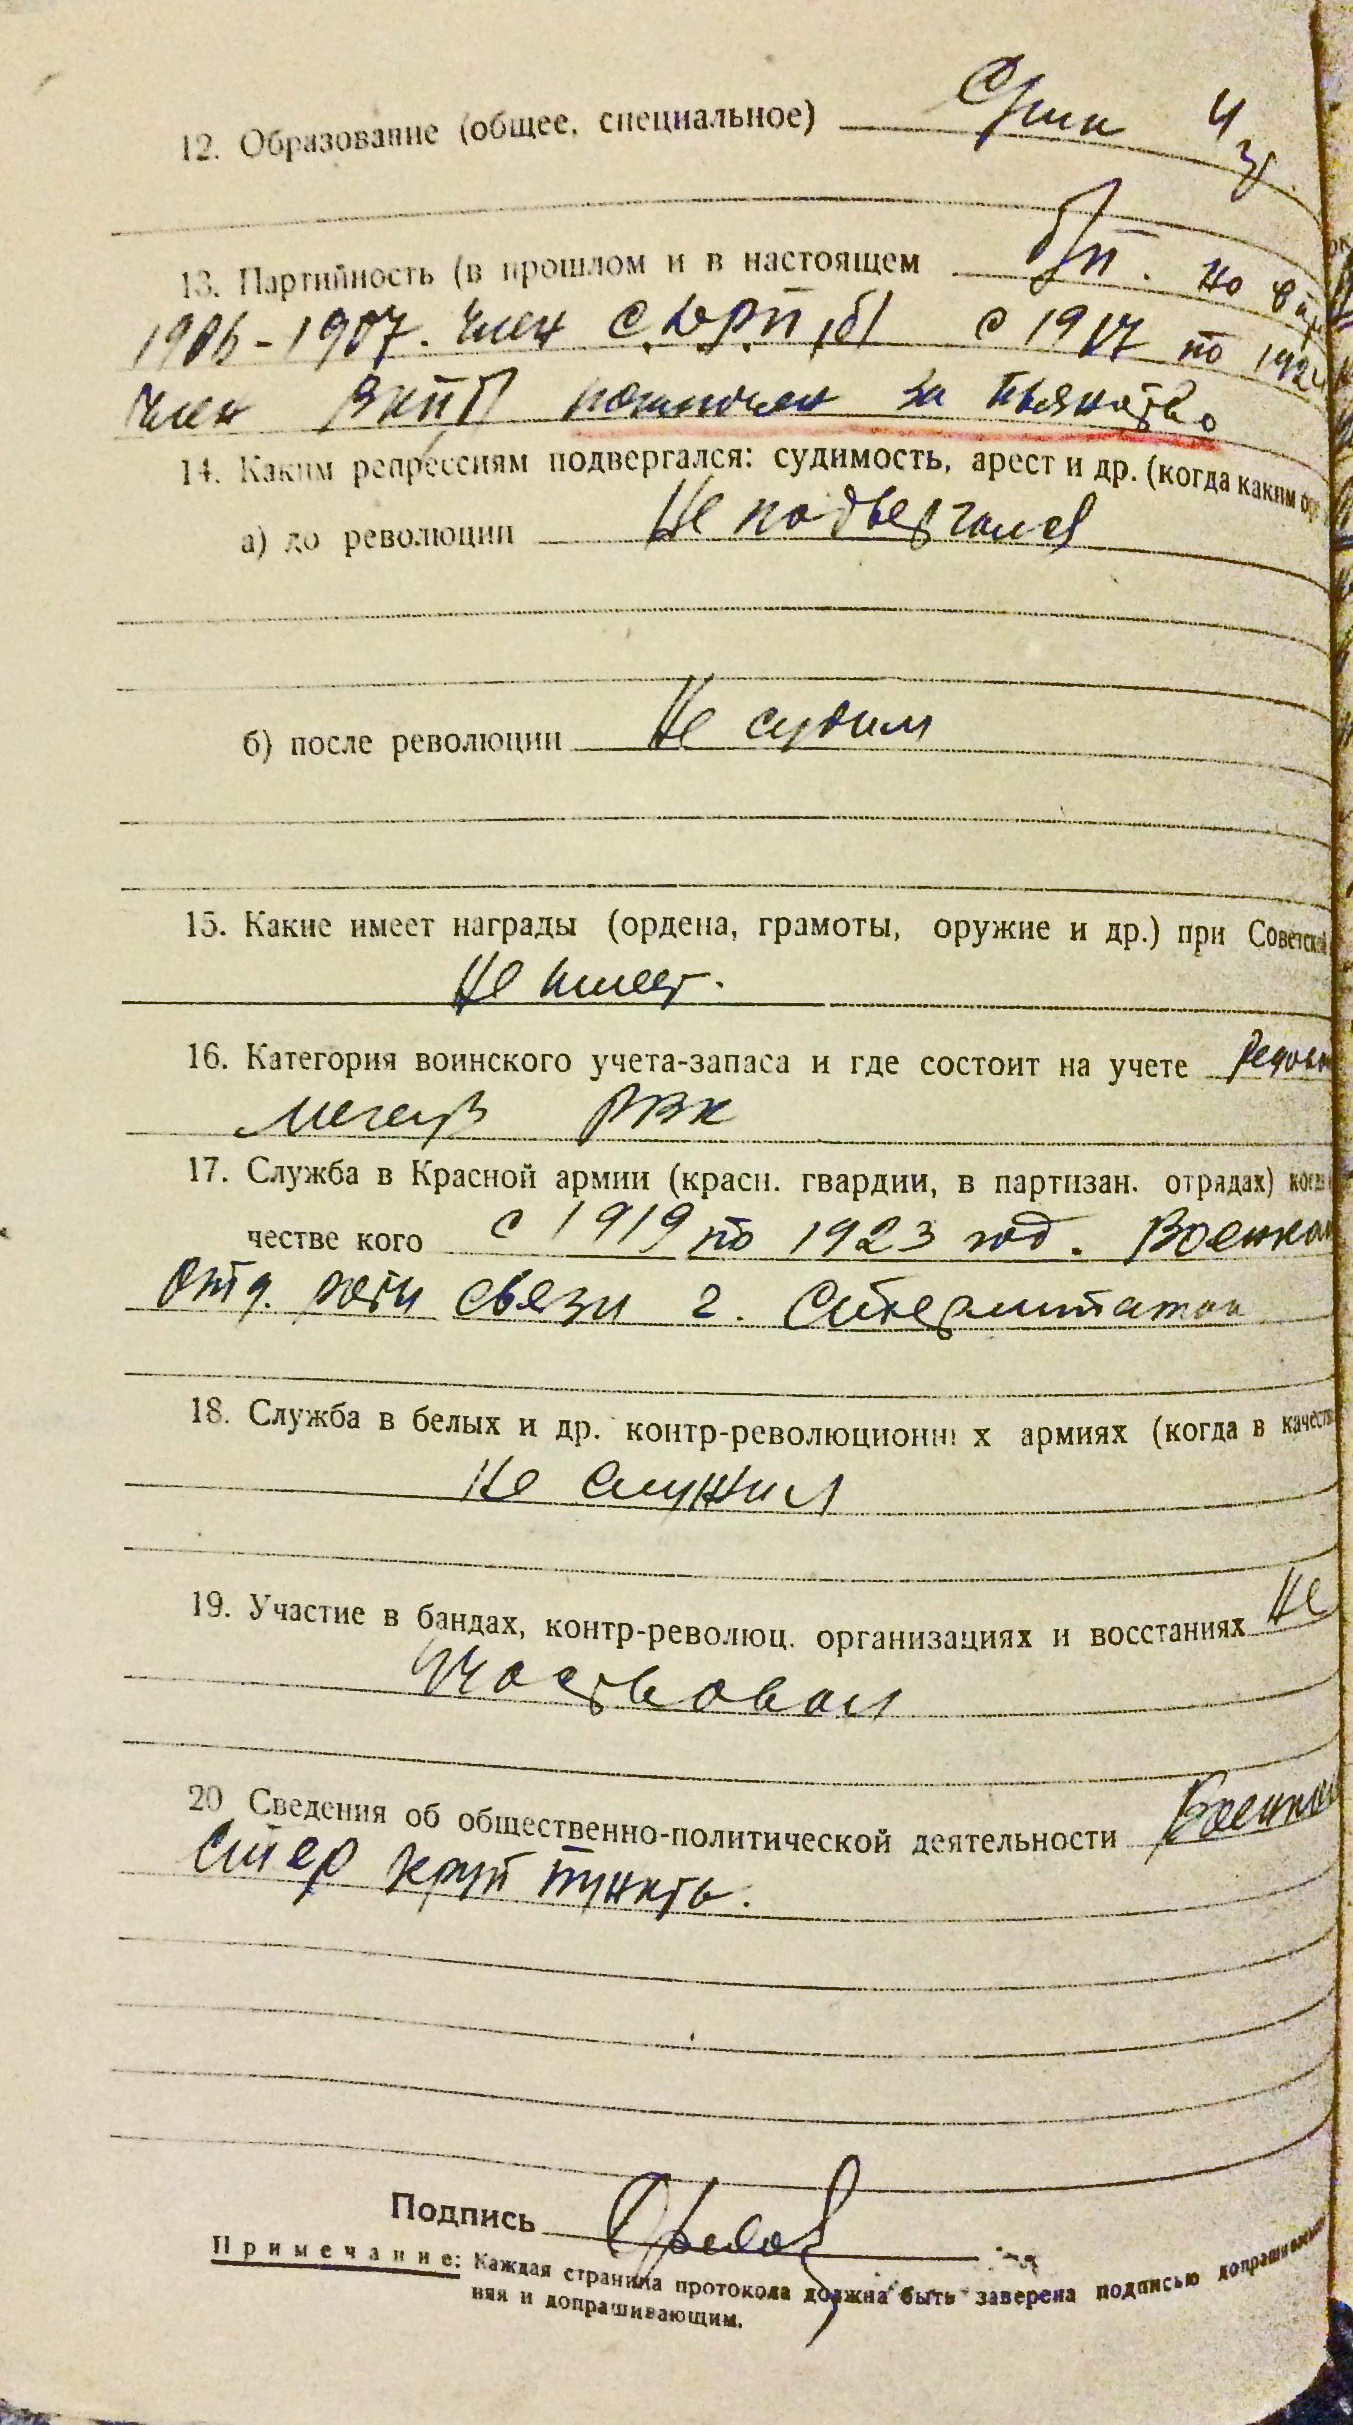 12. Образование (общее, специальное)
13. Партийность (в прошлом и в настоящем б/п. но в
1906-1907. член С.Д.Р.П. (б) с 1917 по 192
член ВКП исключен за пьянство
14. Каким репрессиям подвергался: судимость, арест и др. (когда каким ор
а) до революции Не подвергался
б) после революции Не судим
15. Какие имеет награды (ордена, грамоты, оружие и др.) при Советской
Не имеет.
16. Категория воинского учета-запаса и где состоит на учете Рядов
РВК
17. Служба в Красной армии (красн. гвардии, в партизан. отрядах) когда
честве кого с 1919 по 1923 год. Военком
Отд. роты связи г.
18. Служба в белых и др. контр-революционных армиях (когда в качеств
Не служил
19. Участие в бандах, контр-революц. организациях и восстаниях Не
Участвовал
20 Сведения об общественно-политической деятельности Военком
пункта.
Подпись
Примечание: Каждая страница протокола должна быть заверена подписью допрашиваемо
няя и допрашивающим.